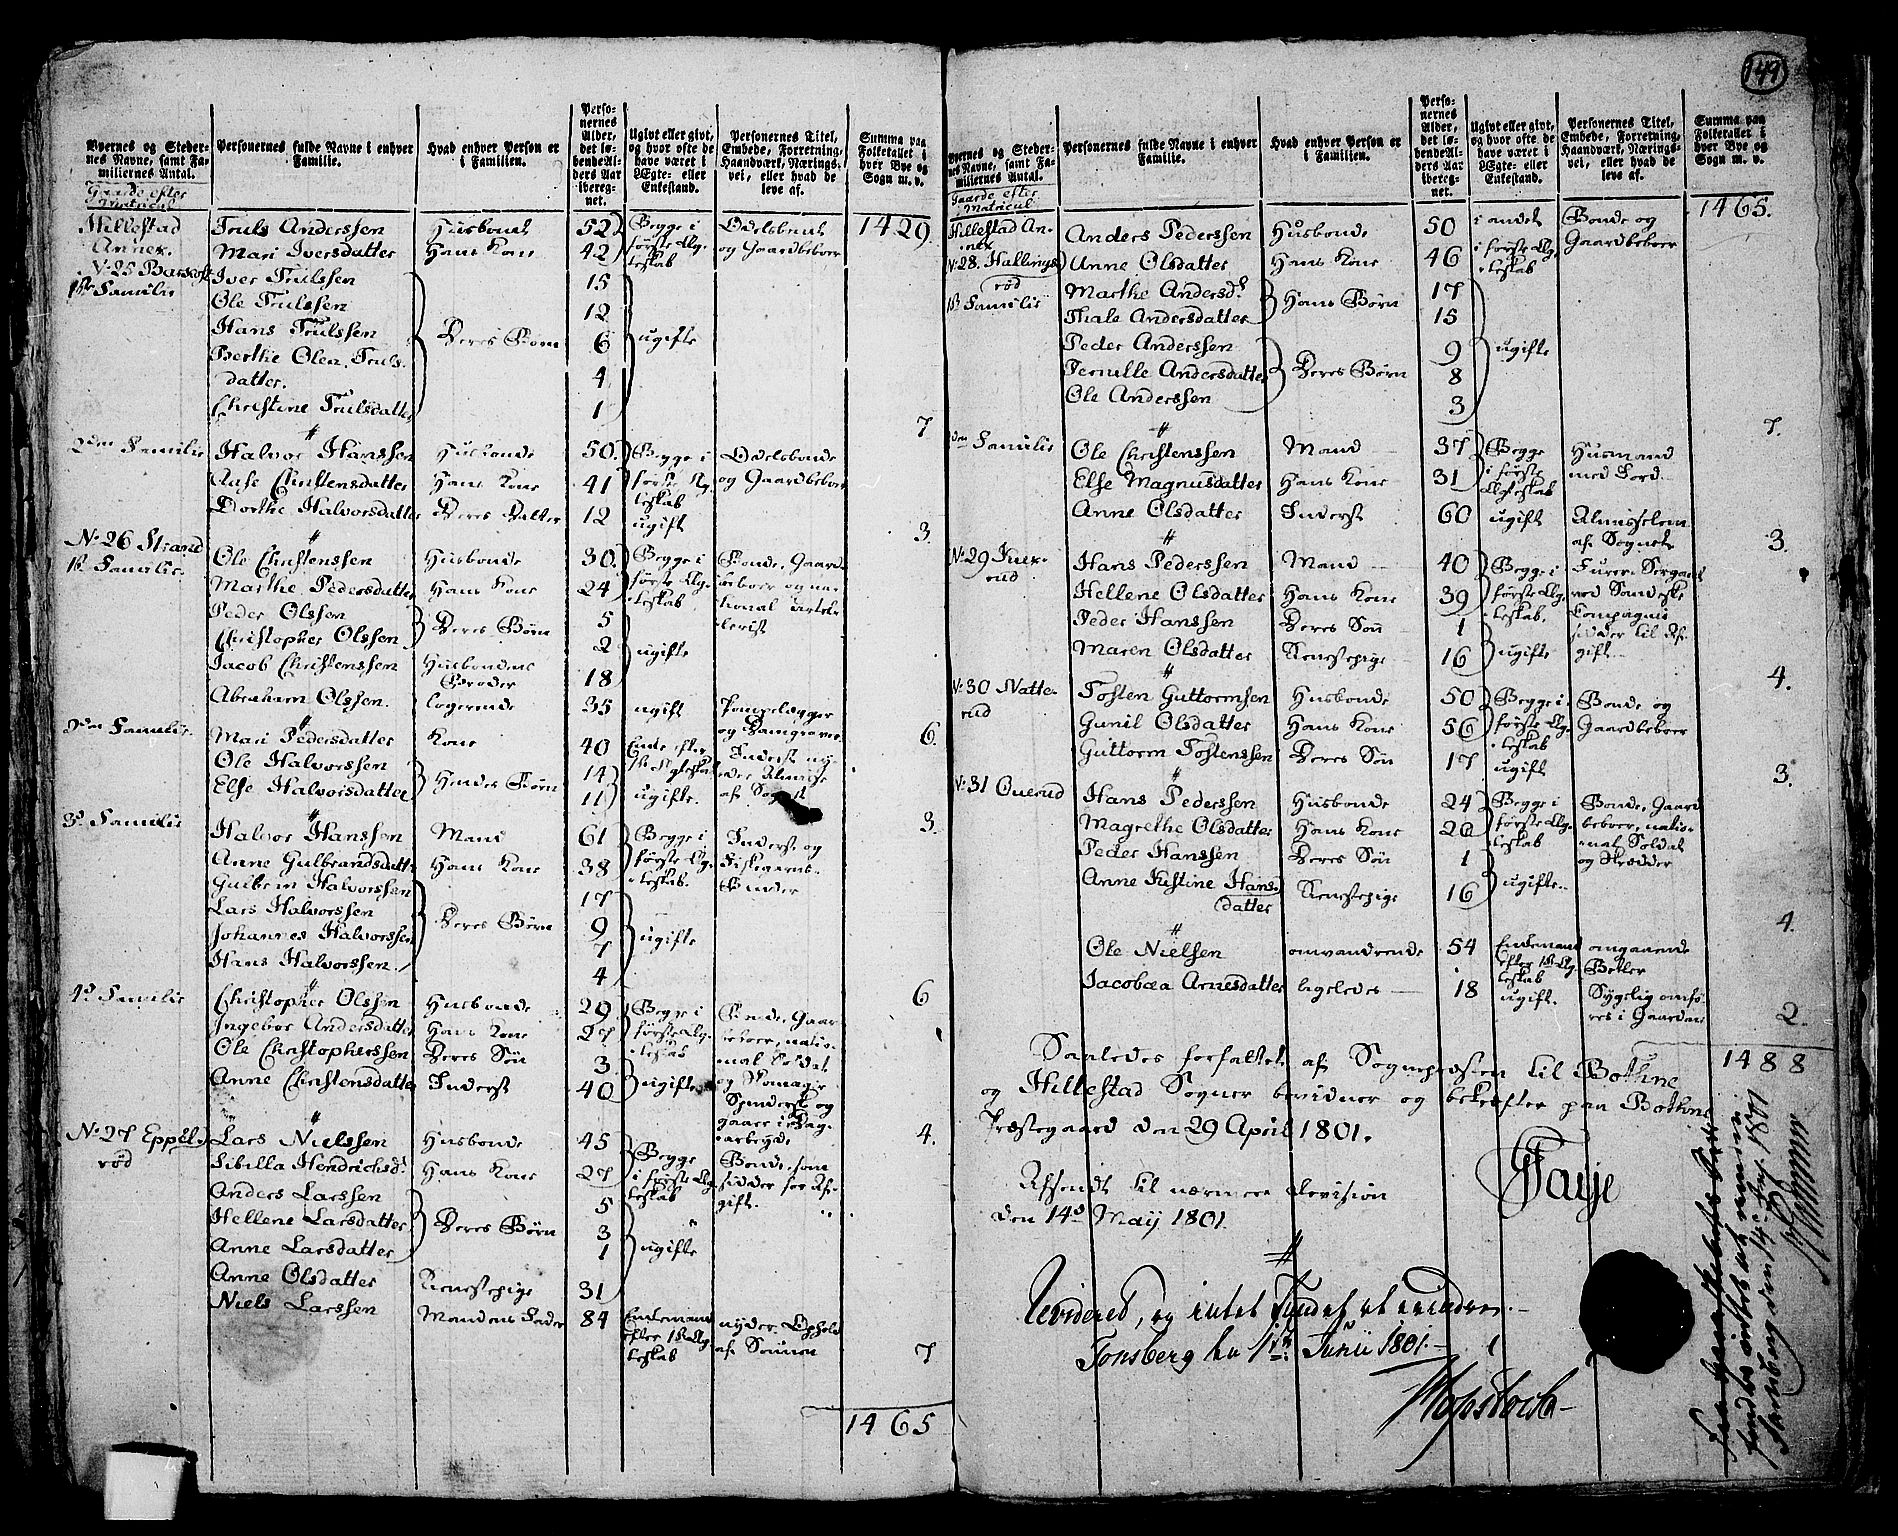 149
Byernes og Stedernes Navne, samt Familiernes Antal.
Personernes fulde Navne i enhver Familie.
Hvad enhver Person er i Familien.
Personernes Alder, det løbende Alders Aar iberegnet.
Ugivt eller givt, og hvor ofte de have været i Ægte- eller Enkestand.
Personernes Titel, Embede, Forretning, Haandværk, Næringsvei, eller hvad de leve af.
Summa paa Folketallet i hver Bye og Sogn m. v.
Gaarde efter Matricul
1429
Hillestad Annex.
N. 25 Barkost
1ste Familie
Truls Anderssen Husbonde 52 Begge i første Ægteskab Odelsbonde og Gaardbeboer
Mari Iversdatter Hans Kone 42
Iver Trulssen 15
Ole Trulssen 12
Hans Trulssen Deres Børn 6 ugifte
Berthe Olea Trulsdatter. 4
Christine Trulsdatter 1
7
2den Familie Halvor Hanssen Husbonde 50 Begge i første Ægteskab Odelsbonde og Gaardbeboer
Anse Christensdatter Hans Kone 41
Dorthe Halvorsdatter Deres Datter 12 ugift
3.
N. 26 Strand
1st Familie. Ole Christenssen Husbonde 30 Begge i første Ægteskab Bonde, Gaardbeboer og national
Marthe Pedersdatter Hans Kone 24
Peder Olssen 5
Christopher Olssen Deres Børn 2 ugifte
Jacob Christenssen Husbondens Broder 18
Abraham Olssen. logerende 35 ugift og Damgraver
6.
2den Familie Mari Pedersdatter Kone 40 Enke efter 1st Ægteskab Inderst nyder Almisse af Sognet
Ole Halvorssen 14
Else Halvorsdatter Hendes Børn 11 ugifte.
3.
3d Familie Halvor Hanssen Mand 61 Begge i første Ægteskab. Inderst og Fiskegarns-Binder
Anne Gulbrandsdatter Hans Kone 38
Gulbrn Halvorssen 17
Lars Halvorssen Deres Børn 9 ugifte
Johannes Halvorssen 7
Hans Halvorssen 4
6
4d Familie Christopher Olssen Husbonde 29 Begge i første Ægteskab Bonde, Gaardbeboer, national Soldat og Skomager
Ingebor Andersdatter Hans Kone 27
Ole Christopherssen Deres Søn 3
Anne Christensdatter Inderst 40 ugifte Spinderske og gaaer i Dagarbejde
4.
N. 27 Eppelrød Lars Nielssen Husbonde 45 Begge i første Ægteskab Bonde, som sidder for Afgift.
Sibilla Hendrichsd. Hans Kone 27
Anders Larssen 5
Hellene Larsdatter Deres Børn 3
Anne Larsdatter 1 ugifte
Anne Olsdatter Tienestepige 31
Niels Larssen Mandens Fader 84 Enkemand efter 1st Ægteskab nyder Ophold af Sønnen
7
1465
Byernes og Stedernes Navne, samt Familiernes Antal.
Personernes fulde Navne i enhver Familie.
Hvad enhver Person er i Familien.
Personernes Alder, det løbende Alders Aar iberegnet.
Ugivt eller givt, og hvor ofte de have været i Ægte- eller Enkestand.
Personernes Titel, Embede, Forretning, Haandværk, Næringsvei, eller hvad de leve af.
Summa paa Folketallet i hver Bye og Sogn m. v.
Gaarde efter Matricul
1465.
Hillestad Annex
N. 28. Hallingsrød
1st Familie
Anders Pederssen Husbonde 50 i andet Bonde og Gaardbeboer
Anne Olsdatter Hans Kone 46 i første Ægteskab
Marthe Andersd. 17
Thale Andersdatter Hans Børn 15
Peder Anderssen 9 ugifte
Pernille Andersdatter Deres Børn 8
Ole Anderssen 3
7.
2den Familie Ole Christenssen Mand 37 Begge i første Ægteskab Husmand med Jord
Else Magnusdatter Hans Kone 31
Anne Olsdatter Inderst 60 ugift Almisselem af Sognet
3.
Hans Pederssen Mand 40 Begge i første Ægteskab. Furer Sergant ved Compagnie sidder til Afgift
Hellene Olsdatter Hans Kone 39
Peder Hanssen Deres Søn 1
Maren Olsdatter Tienestepige 16 ugifte
4.
N. 30 Natterud Tosten Guttormsen Husbonde 50 Begge i første Ægteskab Bonde og Gaardbeboer
Gunil Olsdatter Hans Kone 56
Guttorm Tostenssen Deres Søn 17 ugift
3.
N. 31 Ouerud Hans Pederssen Husbonde 24 Begge i første Ægteskab Bonde, Gaardbeboer, national Soldat og Skrædder
Magrethe Olsdatter Hans Kone 20
Peder Hanssen Deres Søn 1
Anne Kistine Hansdatter Tienestepige 16 ugifte.
4.
Ole Nielsen omvandrende 54 Enkemand efter 1st Ægteskab omgaaende Betler
Jacobæa Arnesdatter ligeledes 18 ugift. Sygelig omføres i Gaardene
2.
1488
Saaledes forfattet af Sognepræsten til Bothne
og Hillestad Sogner bevidner og bekræfter paa Bothne
Præstegaard den 29 April 1801.
Faye
Afsendt til nærmere Revision
den 14d May 1801.
Revideret, og intet fundet at erindre.
Tonsberg den 1ste Junii 1801.